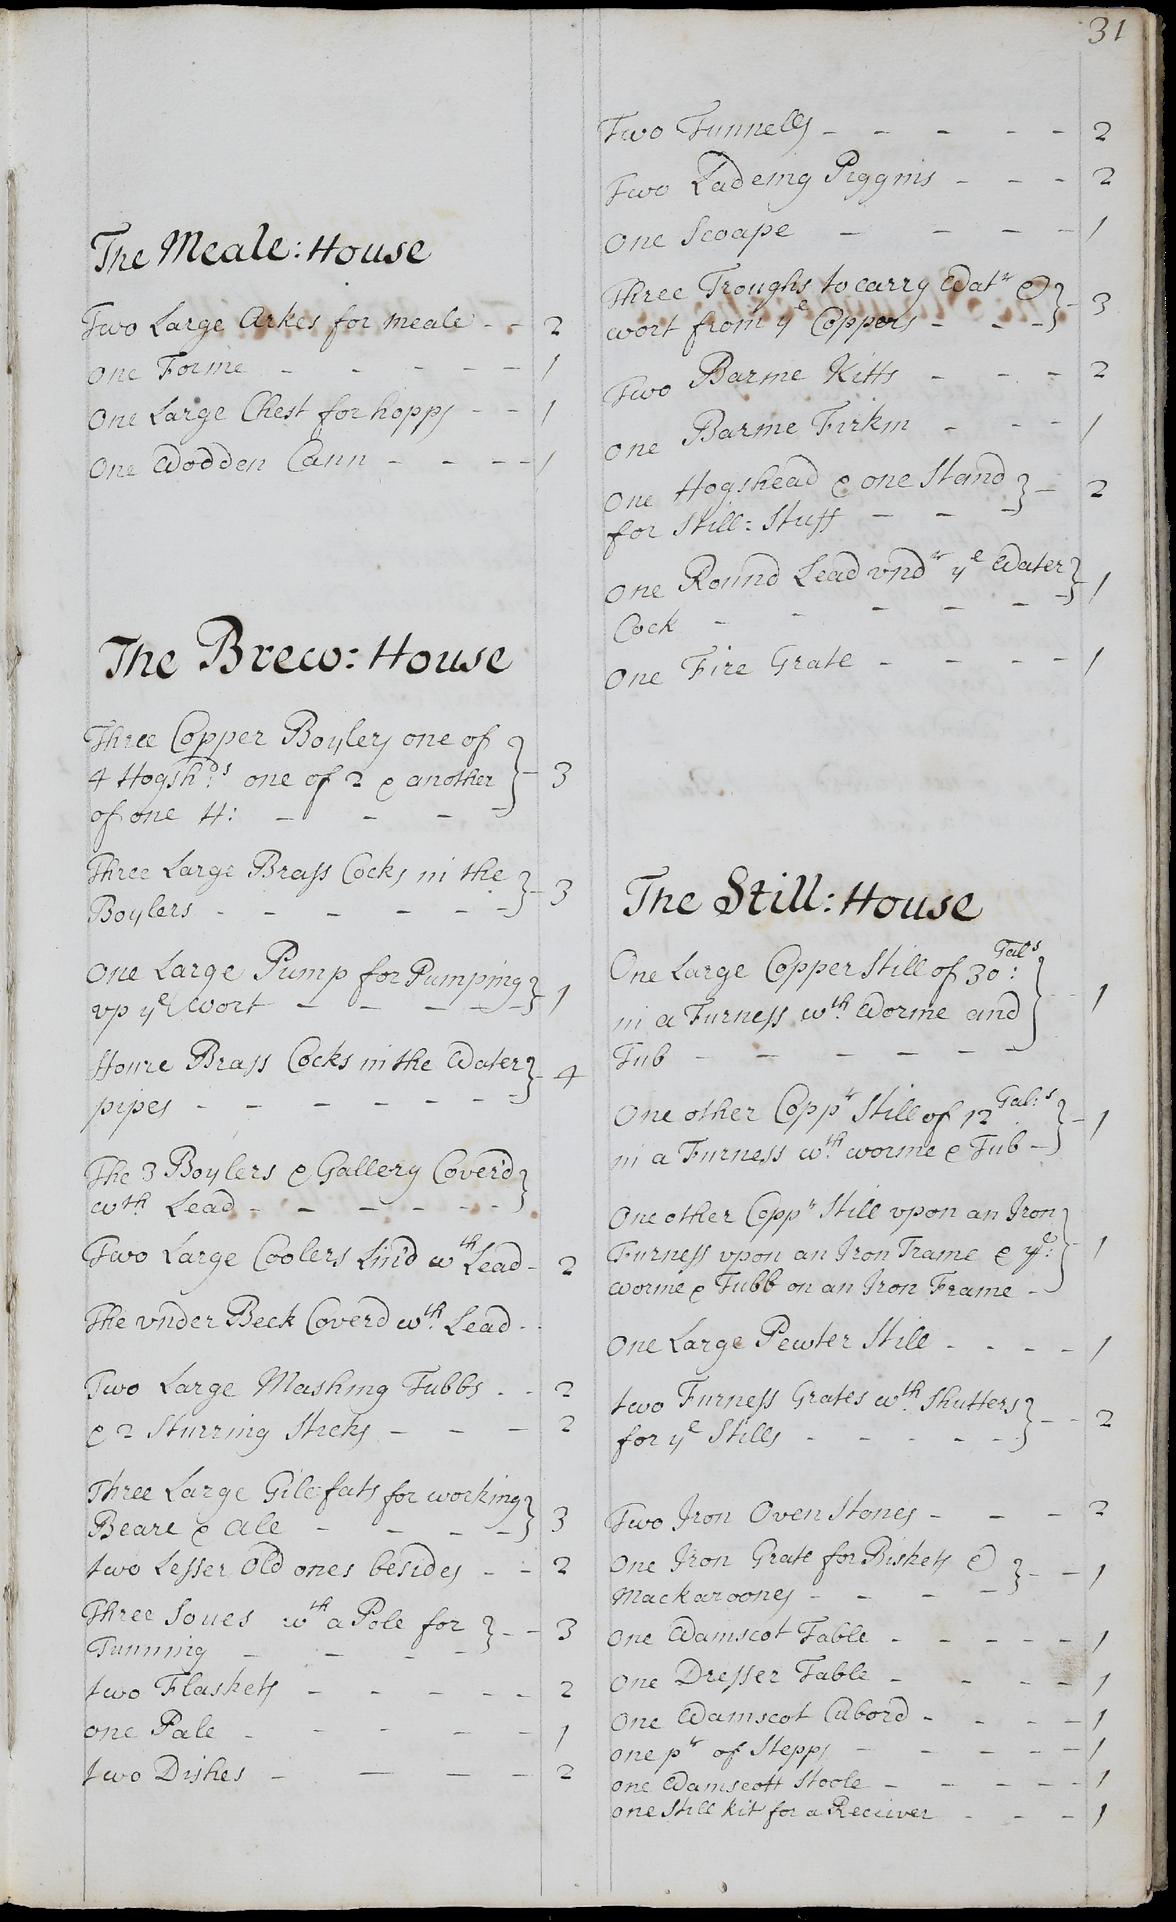 31
The Meale: House
Two Large Arkes for meale - - 2
One Forme - - - - - 1
One Large Chest for hopps - - 1
One Wodden Cann - - - - 1
The Brew: House
Three Copper Boylers one of
4 Hogshds one of 2 & another } - 3
of one H: - - - -
Three Large Brass Cocks in the } - 3
Boylers - - - - - -
One Large Pump for Pumping } 1
vp ye wort - - - - -
Foure Brass Cocks in the Water } - 4
pipes - - - - - -
The 3 Boylers & Gallery Coverd }
wth Lead - - - - - -
Two Large Coolers Lin'd wth Lead - 2
The vnder Beck Coverd wth Lead - -
Two Large Mashing Tubbs - - 2
& 2 Sturring Sticks - - - 2
Three Large Gile fats for working } 3
Beare & Ale - - - -
two Lesser Old ones besides - - 2
Three Soues wth a Pole for } - - 3
Tunning - - - -
two Flaskets - - - - - 2
one Pale - - - - - 1
two Dishes - - - - 2
Two Tunnells - - - - - 2
Two Ladeing Piggins - - - 2
One Scoape - - - - 1
Three Troughs to carry Watr & } - 3
wort from ye Coppers - - -
Two Barme Kitts - - - 2
One Barme Firkin - - - 1
One Hogshead & one Stand } - 2
for Still: Stuff - - -
One Round Lead vndr ye Water } 1
Cock - - - - - -
One Fire Grate - - - - 1
The Still: House
One Large Copper Still of 30: Gals
in a Furness wth Worme and } - - 1
Tub - - - - - -
One other Coppr Still of 12 Gal:s } - 1
in a Furness wth worme & Tub -
One other Coppr Still vpon an Iron
Furness vpon an Iron Frame & ye: } - 1
worme & Tubb on an Iron Frame -
One Large Pewter Still - - - - 1
two Furness Grates wth Shutters } - - 2
for ye Stills - - - - -
Two Iron Oven Stones - - - 2
One Iron Grate for Biskets & } - - 1
Mackaroones - - - -
One Wamscot Table - - - - - 1
One Dresser Table - - - - 1
One Wamscot Cubord - - - - 1
one pr of Stepps - - - - 1
one Wamscott Stoole - - - - - 1
one Still Kit for a Reciuer - - - 1